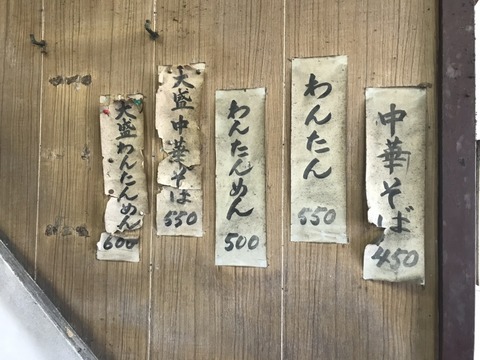 中華そば 450
わんたん 550
わんたんめん 500
大盛中華そば 550
大盛わんたんめん 600